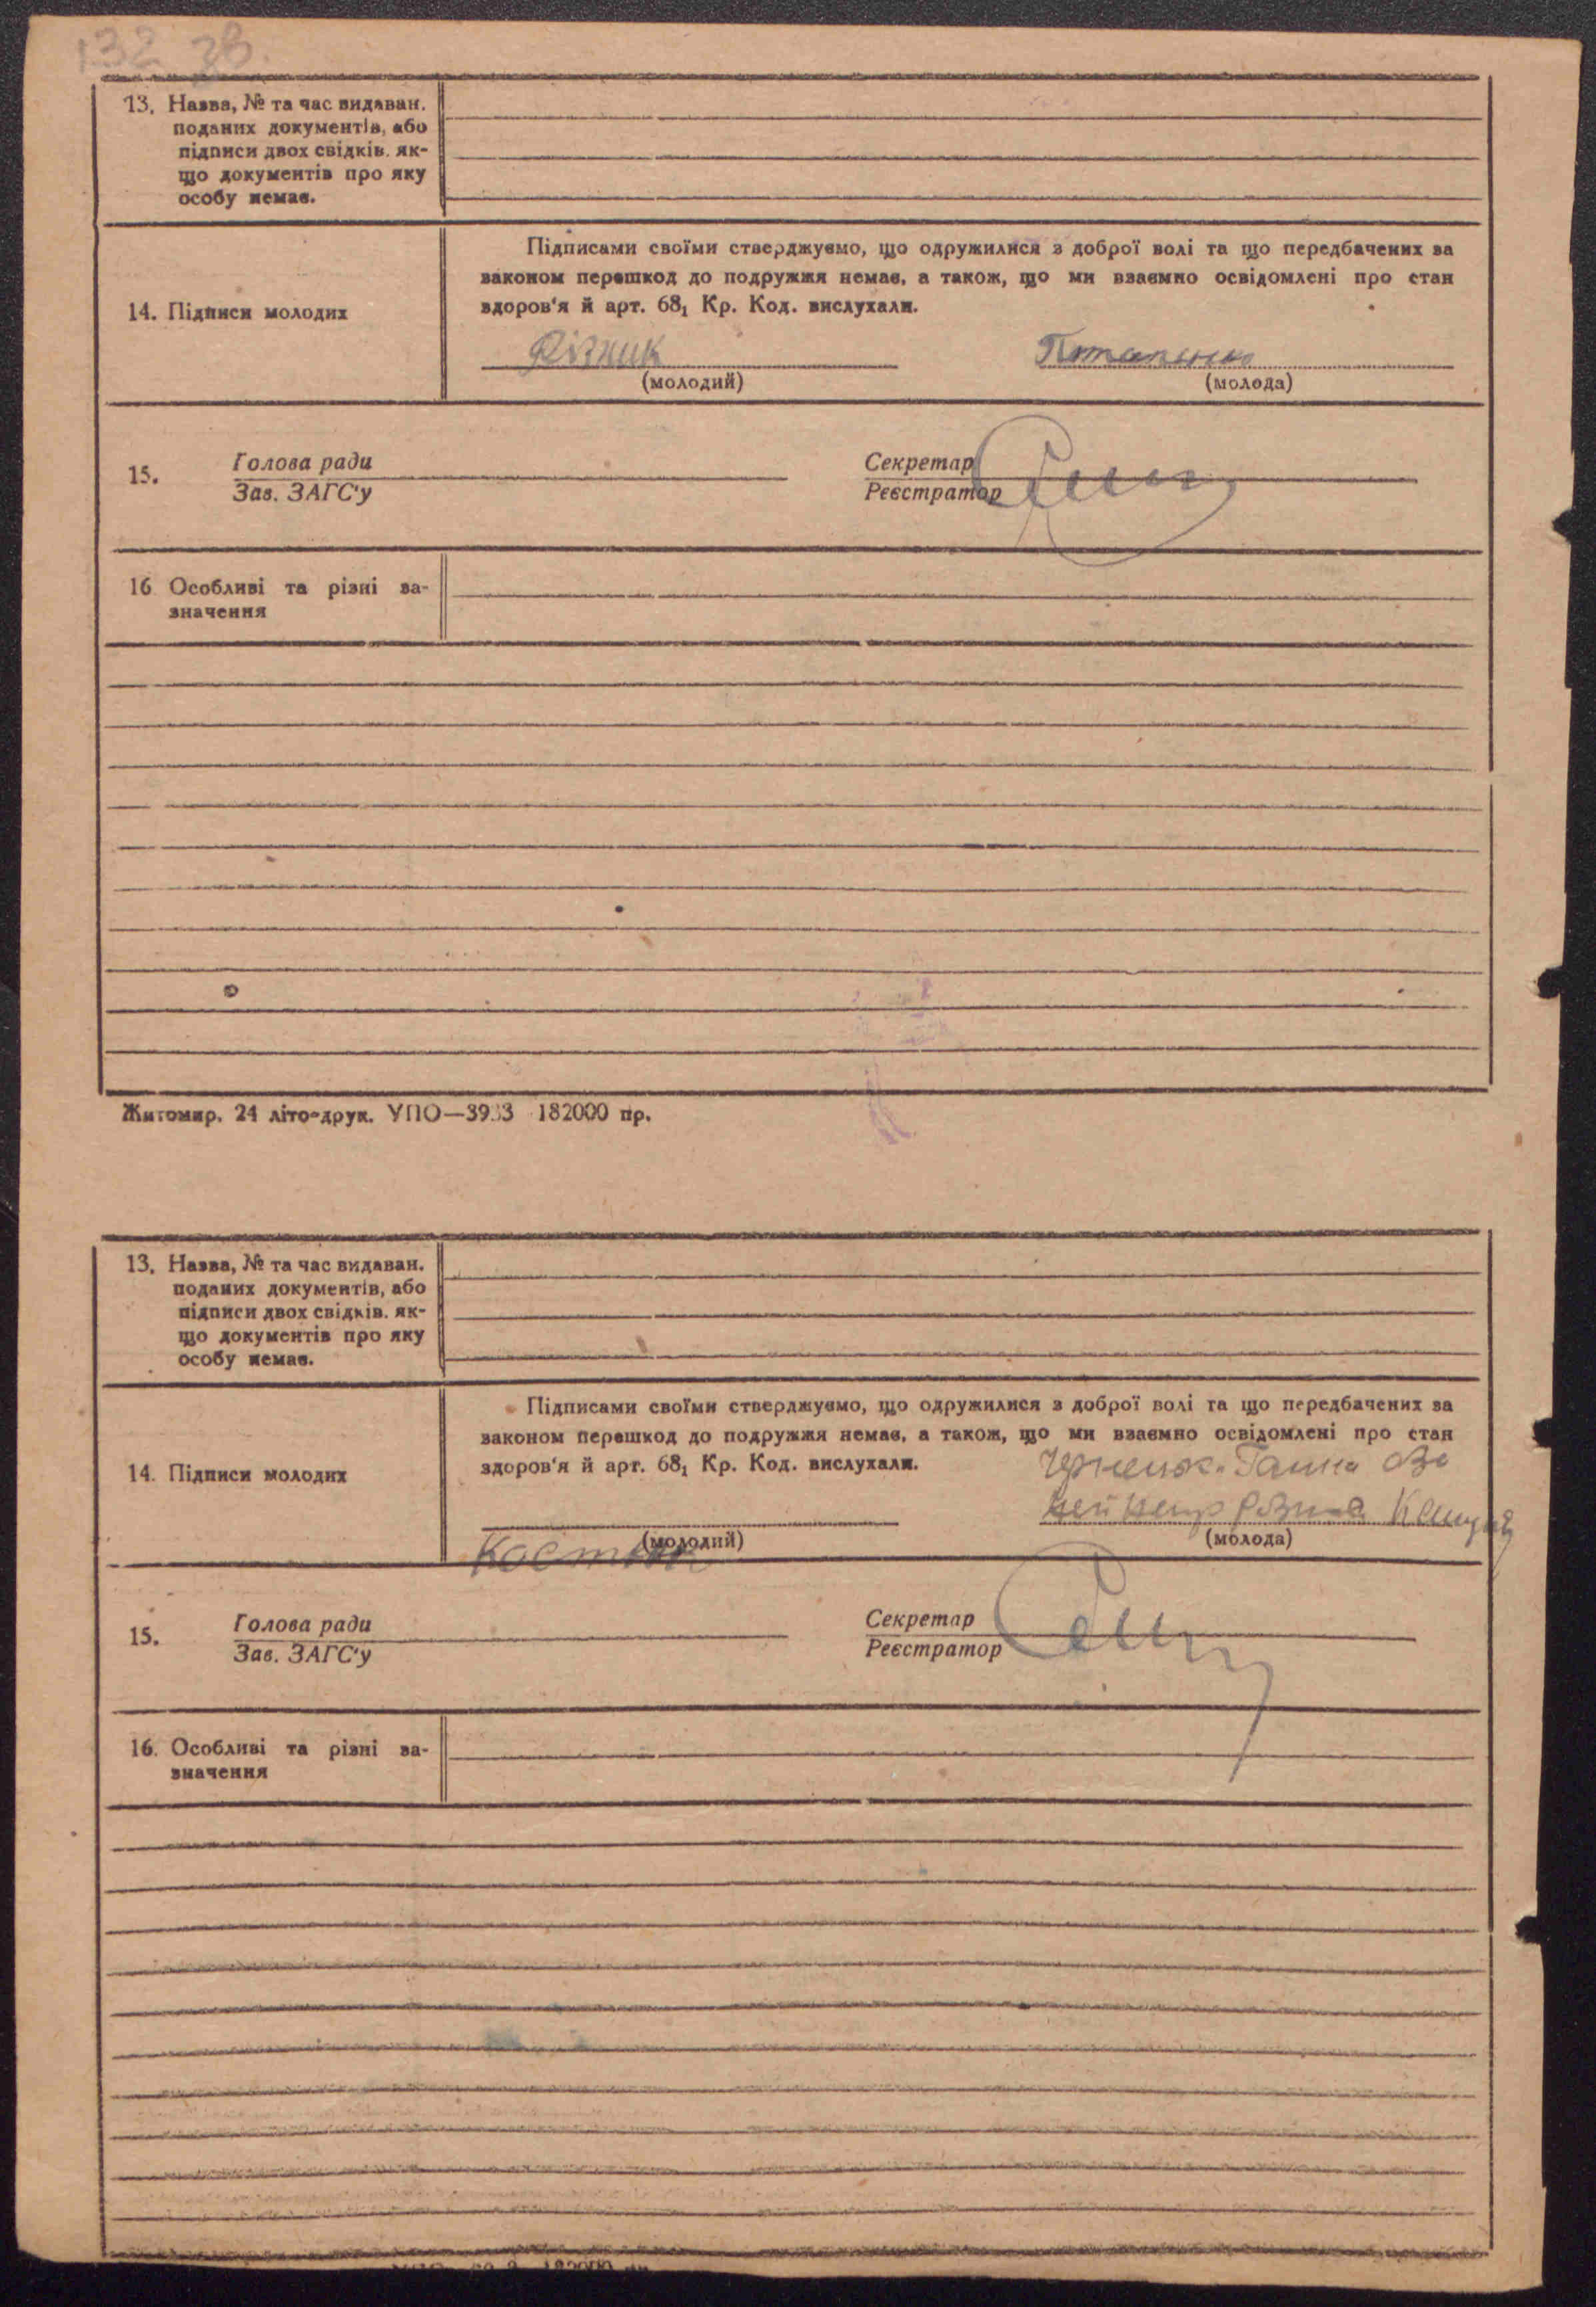 132 зв.
13. Назва, № та час видаван.
поданих документів, або
підписи двох свідків. як-
що документів про яку
особу немає.
Підписами своїми стверджуємо, що одружилися з доброї волі та що передбачених за
законом перешкод до подружжя немає, а також, що ми взаємно освідомлені про стан
здоров'я й арт. 68₁ Кр. Код. вислухали.
14. Підписи молодих
Різник Потапенко
(молодий) (молода)
15. Голова ради Секретар
Зав. ЗАГС'у Реєстратор
16 Особливі та різні за-
значення
Житомир. 24 літо-друк. УПО—3933 182000 пр.
13. Назва, № та час видаван.
поданих документів, або
підписи двох свідків. як-
що документів про яку
особу немає.
Підписами своїми стверджуємо, що одружилися з доброї волі та що передбачених за
законом перешкод до подружжя немає, а також, що ми взаємно освідомлені про стан
здоров'я й арт. 68₁ Кр. Код. вислухали.
14. Підписи молодих
Ганна
(молодий) (молода)
Костюк
15. Голова ради Секретар
Зав. ЗАГС'у Реєстратор
16. Особливі та різні за-
значення